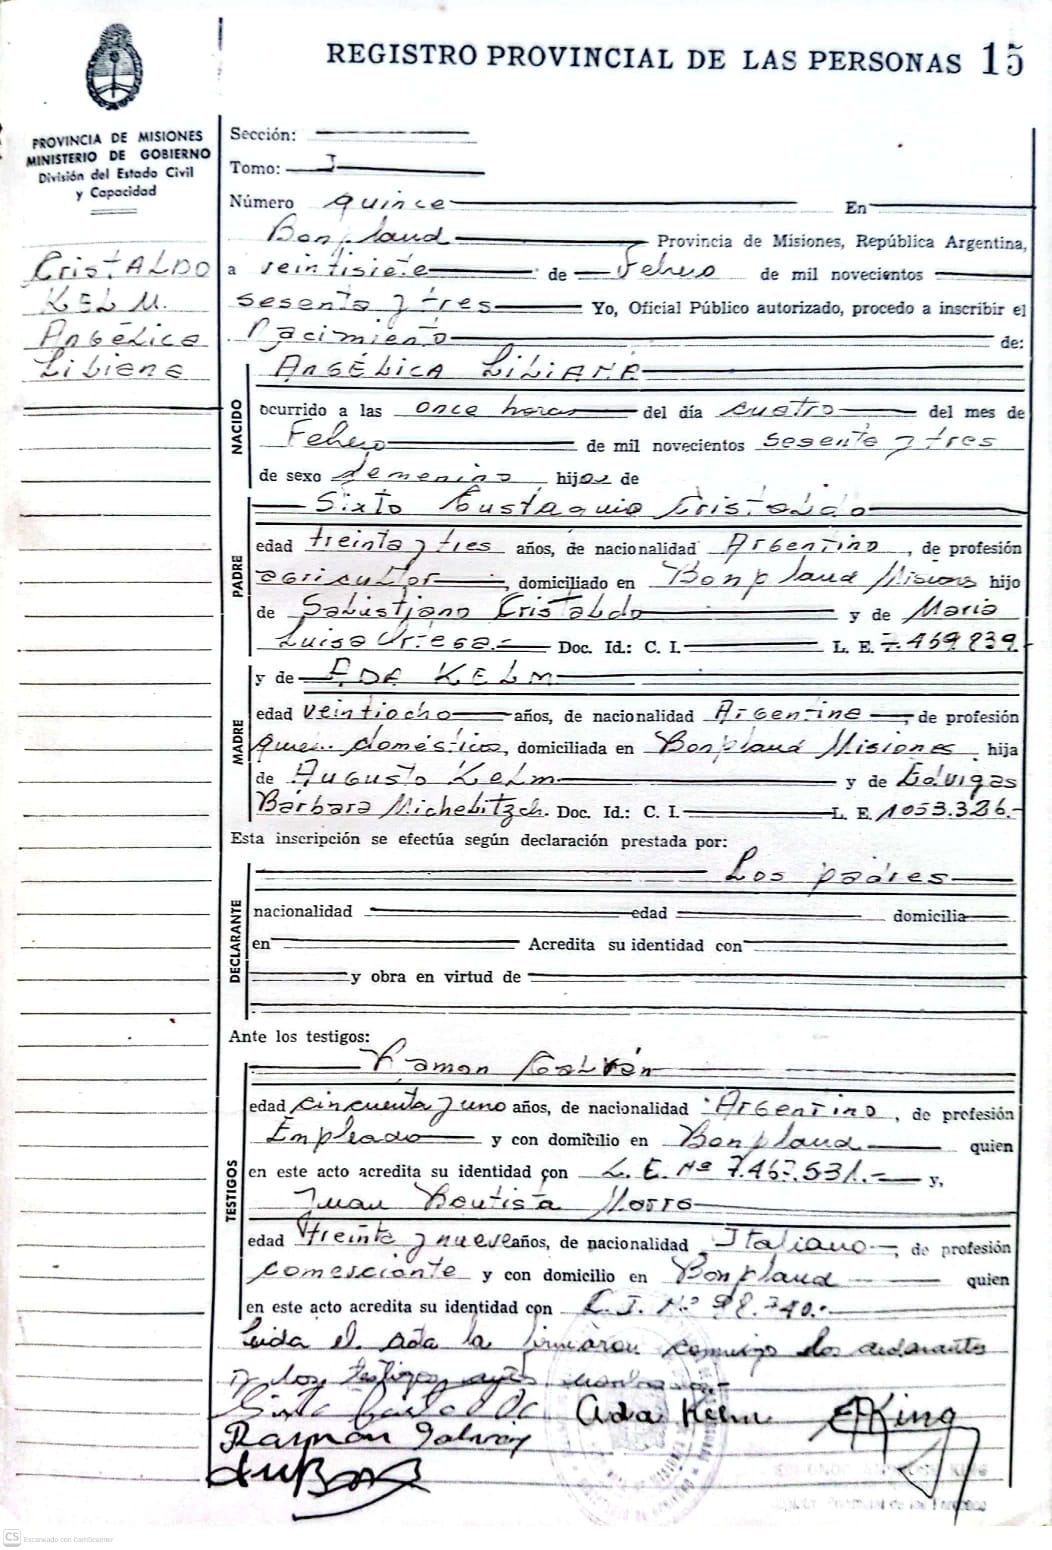 REGISTRO PROVINCIAL DE LAS PERSONAS 15
PROVINCIA DE MISIONES
MINISTERIO DE GOBIERNO
División del Estado Civil
y Capacidad
CRISTALDO
KELM.
Angélica
Liliana
Sección:
Tomo: I
Número quince En
Bonpland Provincia de Misiones, República Argentina,
a veintisiete de Febrero de mil novecientos
sesenta y tres Yo, Oficial Público autorizado, procedo a inscribir el
Nacimiento de:
NACIDO
ANGÉLICA LILIANA
ocurrido a las once horas del día cuatro del mes de
Febrero de mil novecientos sesenta y tres
de sexo femenino hija de
PADRE
Sixto Eustaquio Cristaldo
edad treinta y tres años, de nacionalidad Argentino, de profesión
agricultor, domiciliado en Bonpland Misiones hijo
de Sabustjano Cristaldo y de Maria
Luisa Doc. Id.: C. I. L. E. 7.469.839.
MADRE
y de ADA KELM
edad veintiocho años, de nacionalidad Argentine, de profesión
domésticos, domiciliada en Bonpland Misiones hija
de Augusto Kelm y de Edvigas
Bárbara Michelitzch. Doc. Id.: C. I. L. E. 1053.326.-
Esta inscripción se efectúa según declaración prestada por:
DECLARANTE
Los padres
nacionalidad edad domicilia
en Acredita su identidad con
y obra en virtud de
Ante los testigos:
TESTIGOS
Ramon Galván
edad cincuenta y uno años, de nacionalidad Argentino, de profesión
Empleado y con domicilio en Bonpland quien
en este acto acredita su identidad con L. E. Nº 7.467.531.- y,
Juan Bautista Morro
edad treinta y nueve años, de nacionalidad Italiano, de profesión
comerciante y con domicilio en Bonpland quien
en este acto acredita su identidad con C. I. Nº 98.740.-
Leida el Acta la firmaron conmigo los declarantes
y los testigos
Ada Kelm EKing
Ramón Galván
KING
CS Escaneado con CamScanner